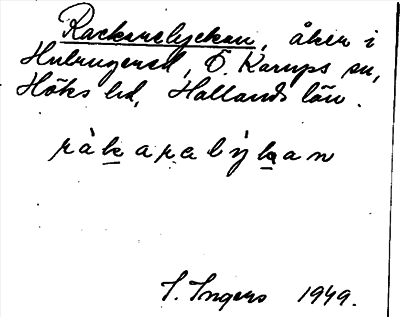 Rackarelyckan, åker i
Hulrugered, Ö. Karups sn,
Höks hd, Hallands län.
ràkarelýkan
I. Ingers 1949.